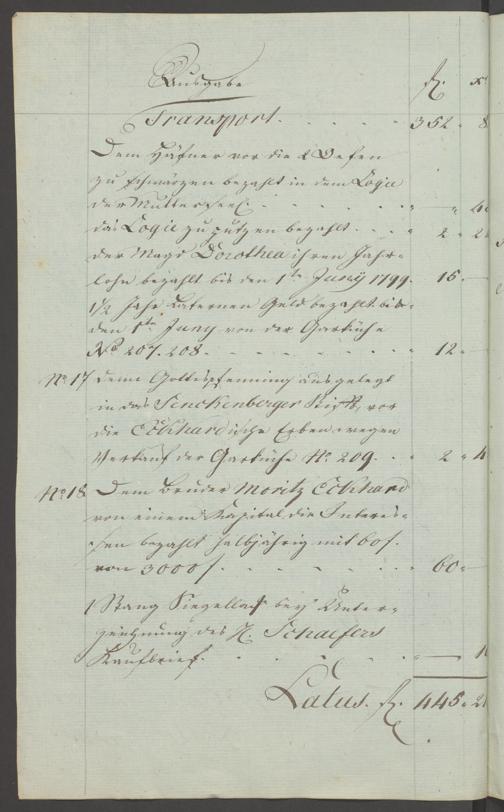 Ausgabe f. x
Transport. 352 " 8
Dem Häfner vor die 2 Oefen
zu schwärzen bezahlt in dem Logie
der Mutter seel. " " 4
das Logie zu putzen bezahlt. 2 " 2
der Magd Dorothea ihren Jahr-
lohn bezahlt bis den 1ten Juny 1799. 15 "
1/2 Jahr Laternen Geld bezahlt bis
den 1ten Juny von der Garküche
No 207. 208. 12 "
No 17 dem Gottespfenning ausgelegt
in das Senckenberger Stift, vor
die Eckhardische Erben wegen
Verkauf der Garküche No. 209. 2 " 4
No 18 Dem Bruder Moritz Eckhard
von einem Kapital die Interes-
sen bezahlt halbjährig mit 60 f.
von 3000 f. 60 "
1 Stang Siegellack bey Unter-
zeichnung des H. Schaefers
Kaufbrief. " 1
Latus. f. 445 " 2